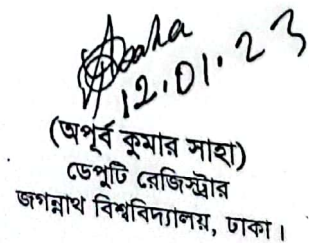 Asaha
12.01.23
(অপূর্ব কুমার সাহা)
ডেপুটি রেজিস্ট্রার
জগন্নাথ বিশ্ববিদ্যালয়, ঢাকা।